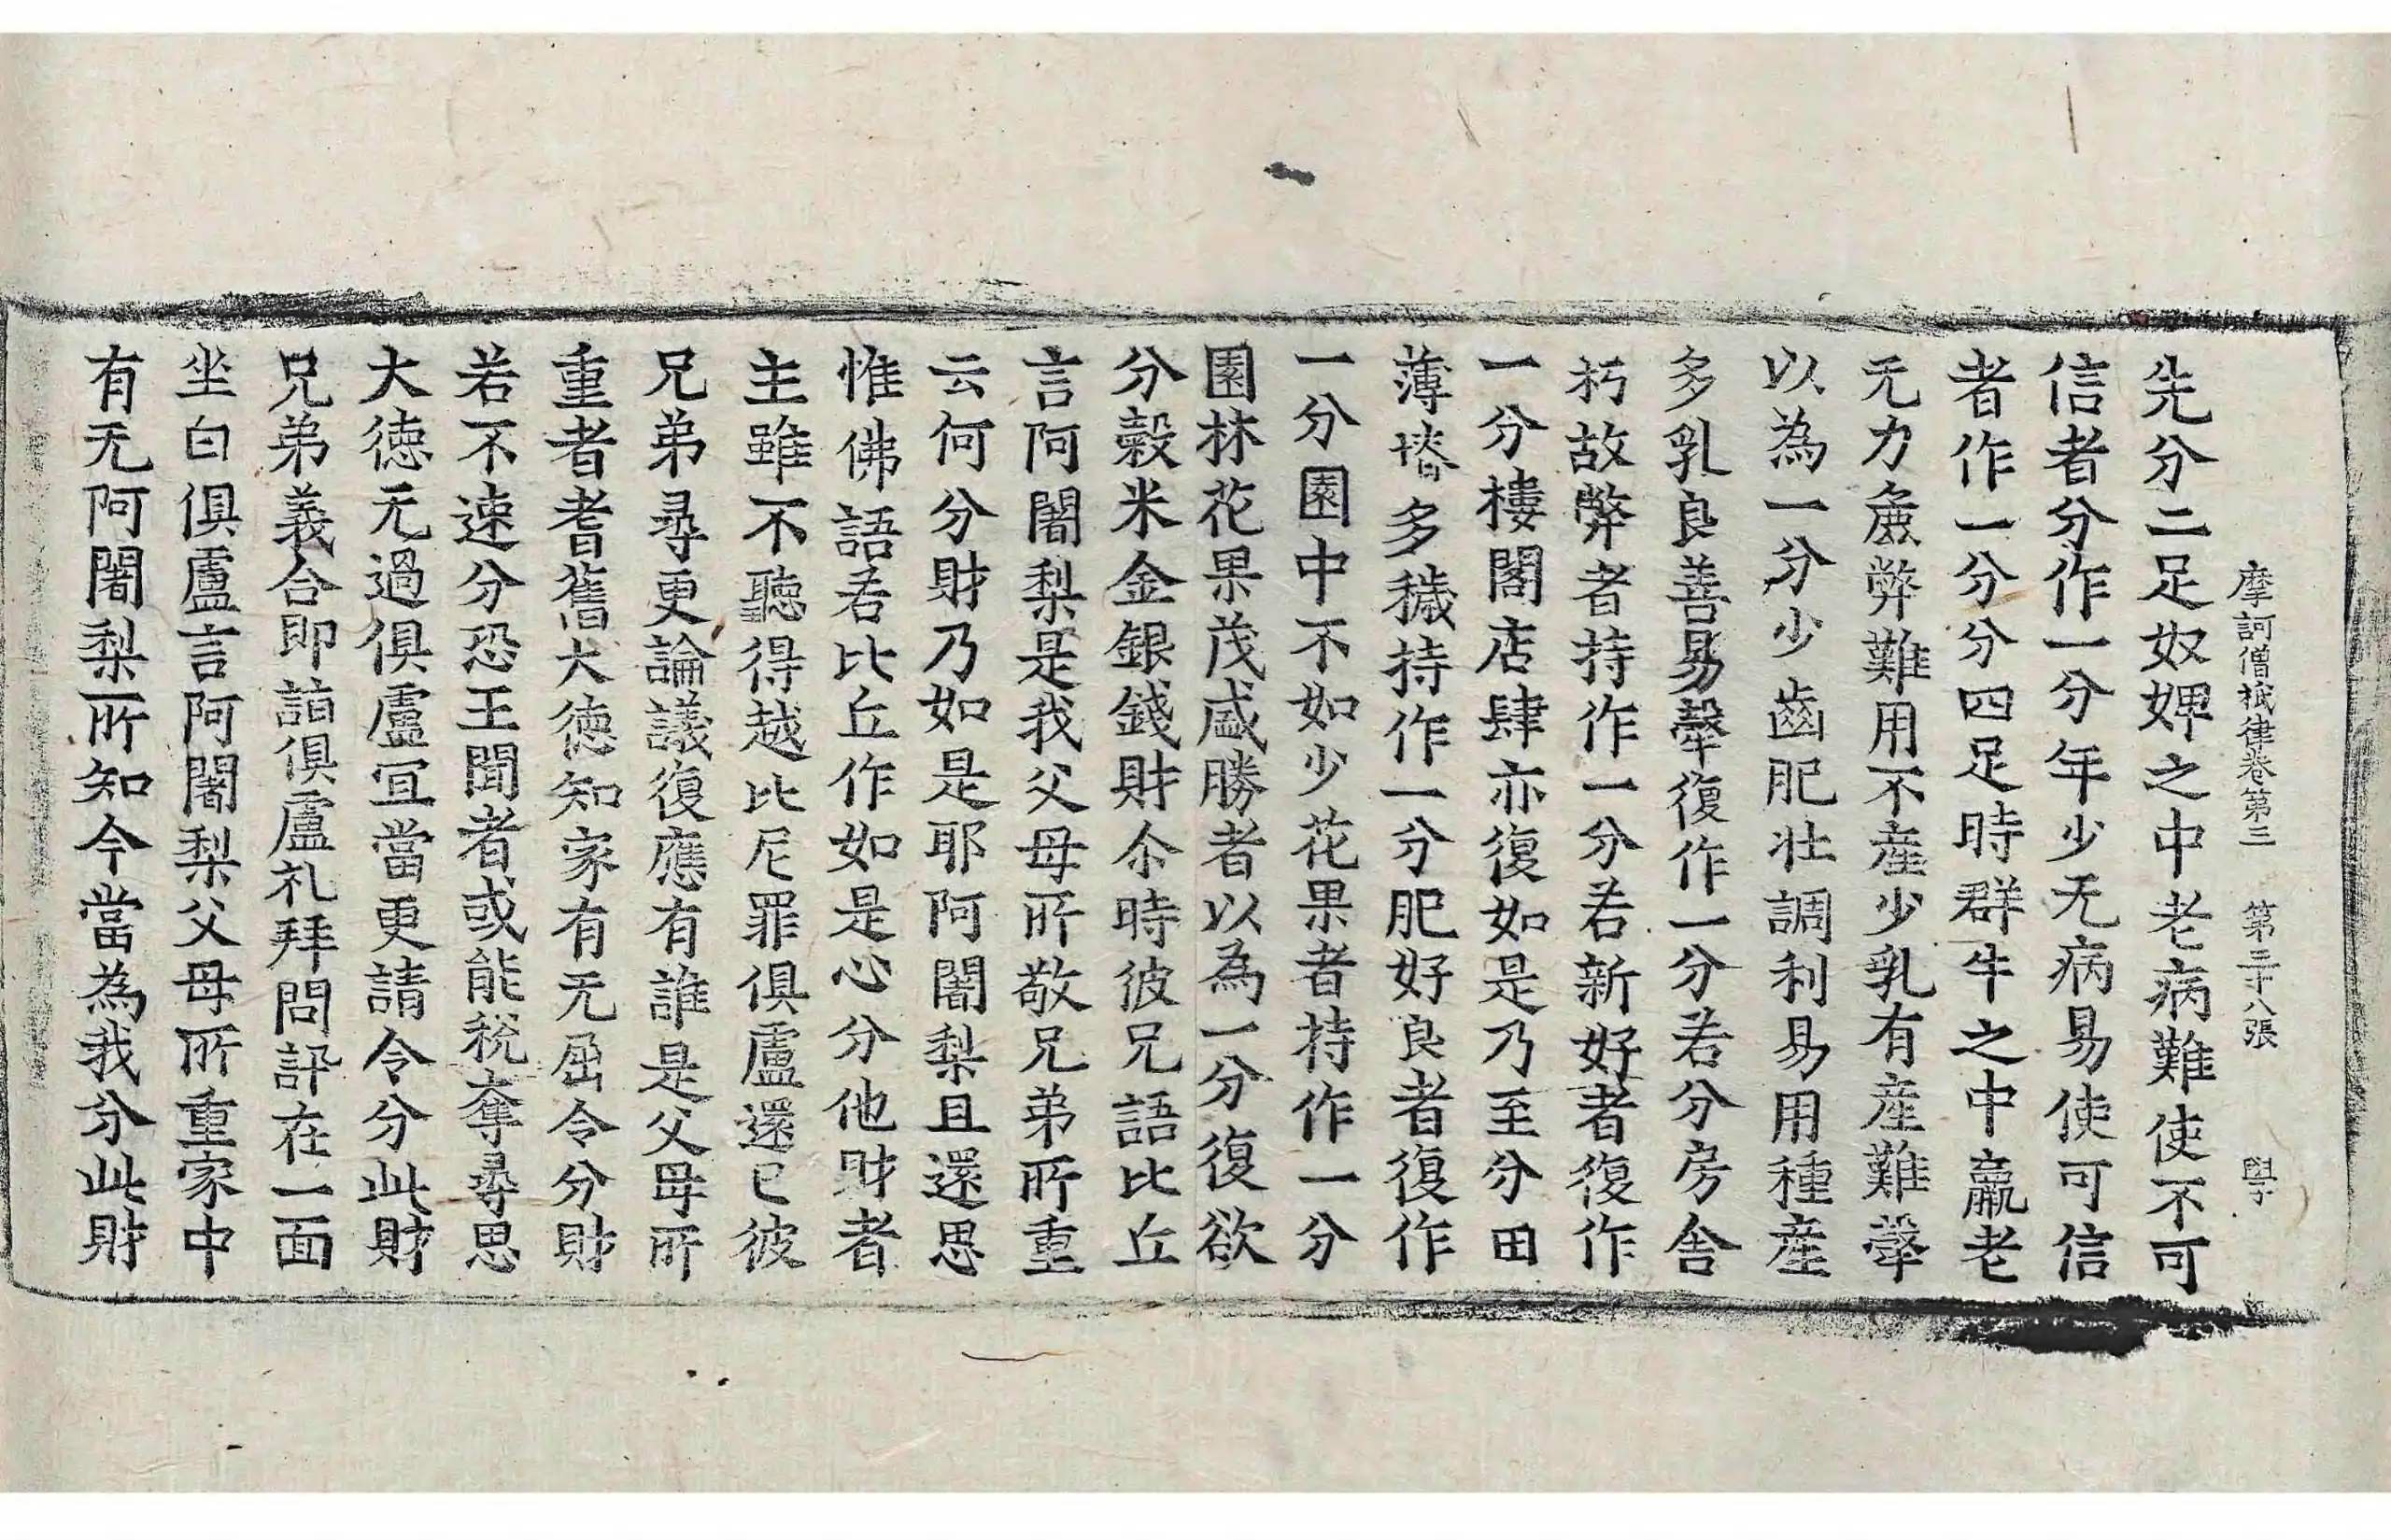 摩訶僧祇律卷第三　第三十八張　學
先分二足奴婢之中老病難使不可
信者分作一分年少无病易使可信
者作一分分四足時群牛之中羸老
无力麁弊難用不產少乳有產難𤛗
以為一分少齒肥壯調利易用種產
多乳良善易𤛗復作一分若分房舍
朽故弊者持作一分若新好者復作
一分樓閣店肆亦復如是乃至分田
薄塉多穢持作一分肥好良者復作
一分園中不如少花果者持作一分
園林花果茂盛勝者以為一分復欲
分穀米金銀錢財尒時彼兄語比丘
言阿闍梨是我父母所敬兄弟所重
云何分財乃如是耶阿闍梨且還思
惟佛語若比丘作如是心分他財者
主雖不聽得越比尼罪俱盧還已彼
兄弟尋更論議復應有誰是父母所
重者耆舊大德知家有无屈令分財
若不速分恐王聞者或能稅奪尋思
大德无過俱盧宜當更請令分此財
兄弟義合即詣俱盧礼拜問訊在一面
坐白俱盧言阿闍梨父母所重家中
有无阿闍梨所知今當為我分此財